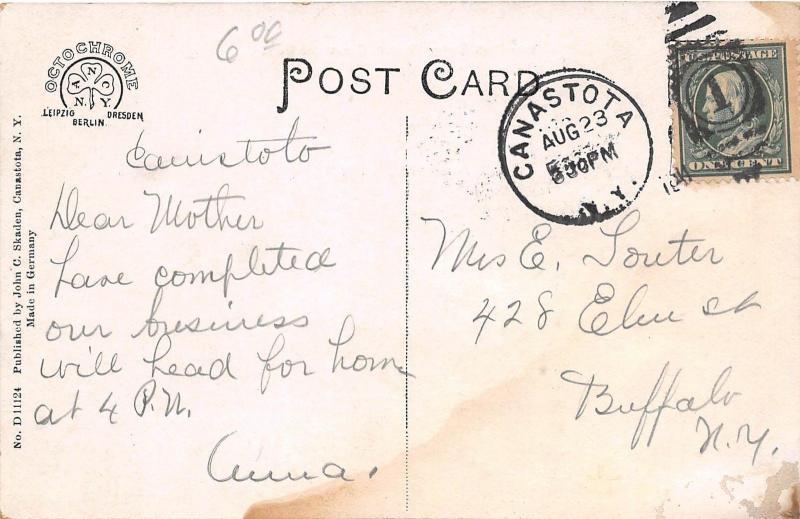 6 00
OCTOCHROME
A N C
N. Y.
LEIPZIG DRESDEN
BERLIN.
POST CARD
CANASTOTA
AUG 23
830PM
N.Y.
U.S. POSTAGE
1
ONE CENT
191
No. D 11124 Published by John C. Skaden, Canastota, N. Y.
Made in Germany
Canistoto
Dear Mother
have completed
our business
will head for home
at 4 P.M.
Anna.
Mrs E. Souter
428 Elm st
Buffalo
N.Y.